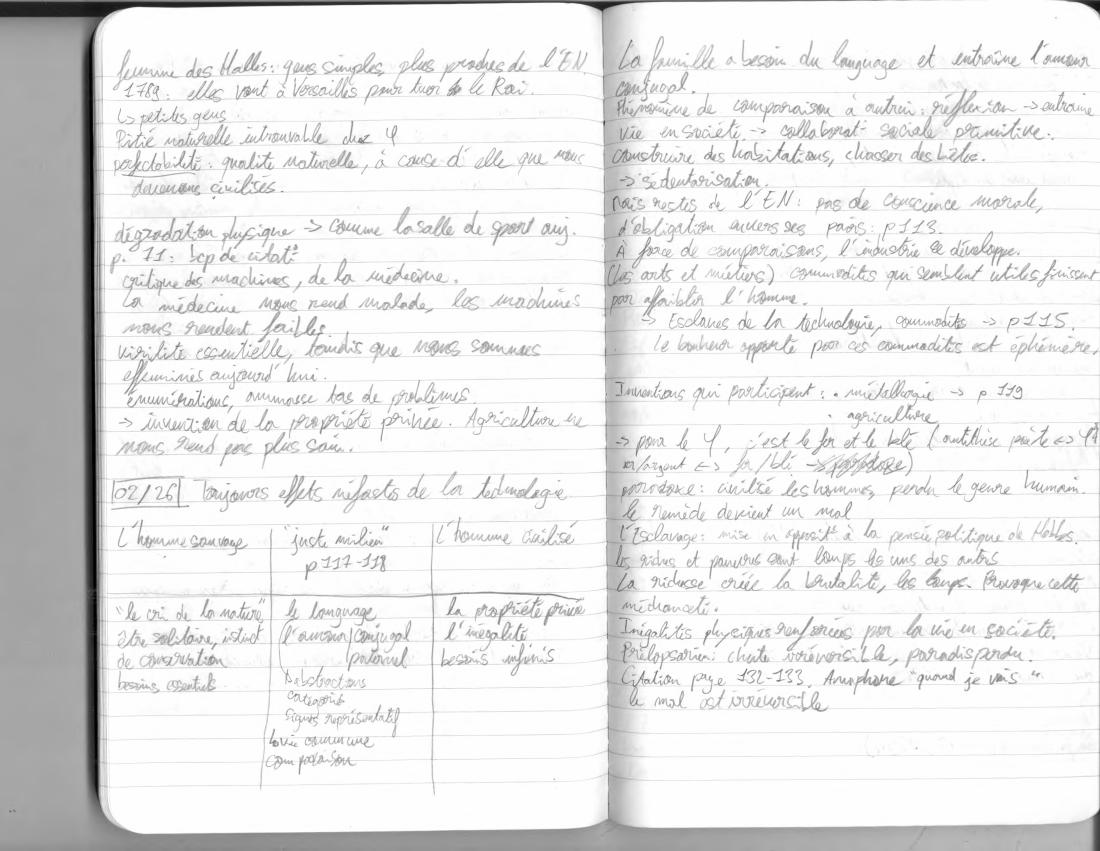 femme des Halles : gens simples, plus proches de l'EN.
1789 : elles vont à Versailles pour tuer le Roi.
↳ petites gens
Pitié naturelle introuvable chez φ
perfectabilité : qualité naturelle, à cause d'elle que nous
devenons civilisés.
dégradation physique → comme la salle de sport auj.
p. 71 : bcp de citat°
critique des machines, de la médecine.
La médecine nous rend malade, les machines
nous rendent faibles.
virilité essentielle, tandis que nous sommes
effeminés aujourd'hui.
énumérations, ammasse tas de problèmes.
→ invention de la propriété privée. Agriculture ne
nous rend pas plus sain.
02/26 Toujours effets néfastes de la technologie
L'homme sauvage
"juste milieu"
p 117-118
L'homme civilisé
"le cri de la nature"
être solitaire, istinct
de conservation
besoins essentiels
le language
l'amour conjugal
paternel
abstractions
catégories
signes représentatif
la vie commune
comparaison
la propriété privée
l'inégalité
besoins infinis
La famille a besoin du language et entraîne l'amour
conjugal.
Phénomène de comparaison à autrui : réflexion → entraine
vie en société → collaborat° sociale primitive.
construire des habitations, chasser des bêtes.
→ sédentarisation.
Mais restes de l'EN : pas de conscience morale,
d'obligation envers ses pairs : p113.
À force de comparaisons, l'industrie se développe.
(les arts et métiers) commodités qui semblent utiles finissent
par affaiblir l'homme.
→ Esclaves de la technologie, commodités → p115.
Le bonheur apporté par ces commodités est éphémère.
Inventions qui participent : • métallurgie → p 119
• agriculture
→ pour le φ, c'est le fer et le blé (antithèse poète ↔ φ
or/argent ↔ fer/blé)
paradoxe : civilisé les hommes, perdu le genre humain.
le remède devient un mal
L'Esclavage : mise en opposit° à la pensée politique de Hobbes.
les riches et pauvres sont loups les uns des autres
La richesse créée la brutalité, les loups. Provoque cette
méchanceté.
Inégalités physiques renforcées par la vie en société.
Prélapsarien : chute irréversible, paradis perdu.
Citation page 132-133. Anaphore "quand je vois".
le mal est irréversible